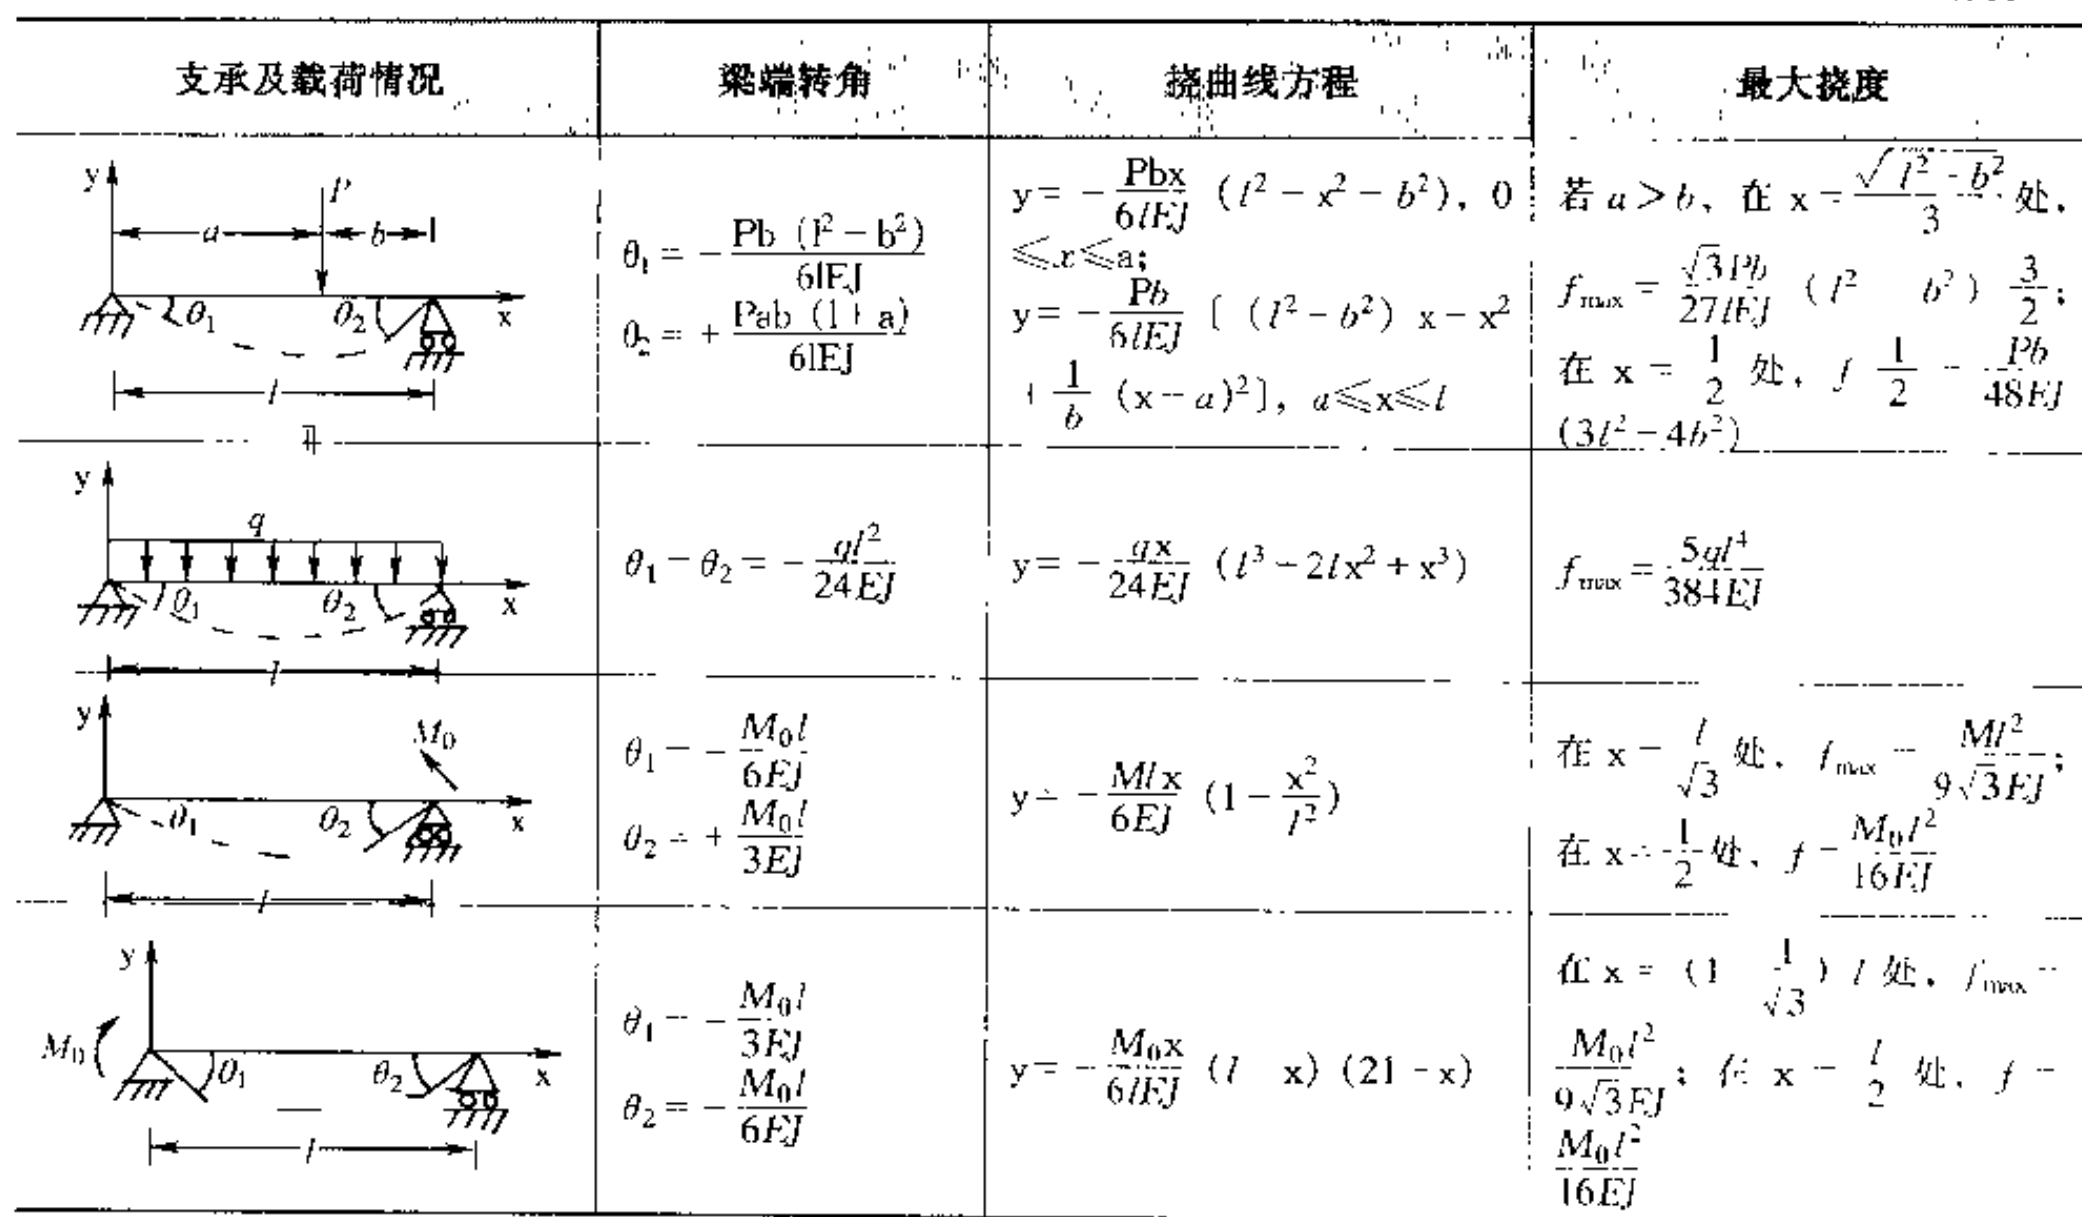 支承及载荷情况 梁端转角 挠曲线方程 最大挠度
y P a b θ₁ θ₂ x l
θ₁ = - Pb (l² - b²) / 6lEJ
θ₂ = + Pab (1 + a) / 6lEJ
y = - Pbx / 6lEJ (l² - x² - b²), 0
≤x≤a;
y = - Pb / 6lEJ [ (l² - b²) x - x²
+ 1 / b (x - a)²], a≤x≤l
若 a > b, 在 x = √(l² - b²) / 3 处,
f max = √3Pb / 27lEJ (l² b²) 3 / 2;
在 x = 1 / 2 处, f 1 / 2 - Pb / 48EJ
(3l² - 4b²)
y q θ₁ θ₂ x l
θ₁ - θ₂ = - ql² / 24EJ
y = - qx / 24EJ (l³ - 2lx² + x³)
f max = 5ql⁴ / 384EJ
y M₀ θ₁ θ₂ x l
θ₁ = - M₀l / 6EJ
θ₂ = + M₀l / 3EJ
y = - Mlx / 6EJ (1 - x² / l²)
在 x = l / √3 处, f max = Ml² / 9√3EJ;
在 x = 1 / 2 处, f = M₀l² / 16EJ
y M₀ θ₁ θ₂ x l
θ₁ = - M₀l / 3EJ
θ₂ = - M₀l / 6EJ
y = - M₀x / 6lEJ (l x) (21 - x)
在 x = (1 1 / √3) l 处, f max =
M₀l² / 9√3EJ; 在 x = l / 2 处, f =
M₀l² / 16EJ